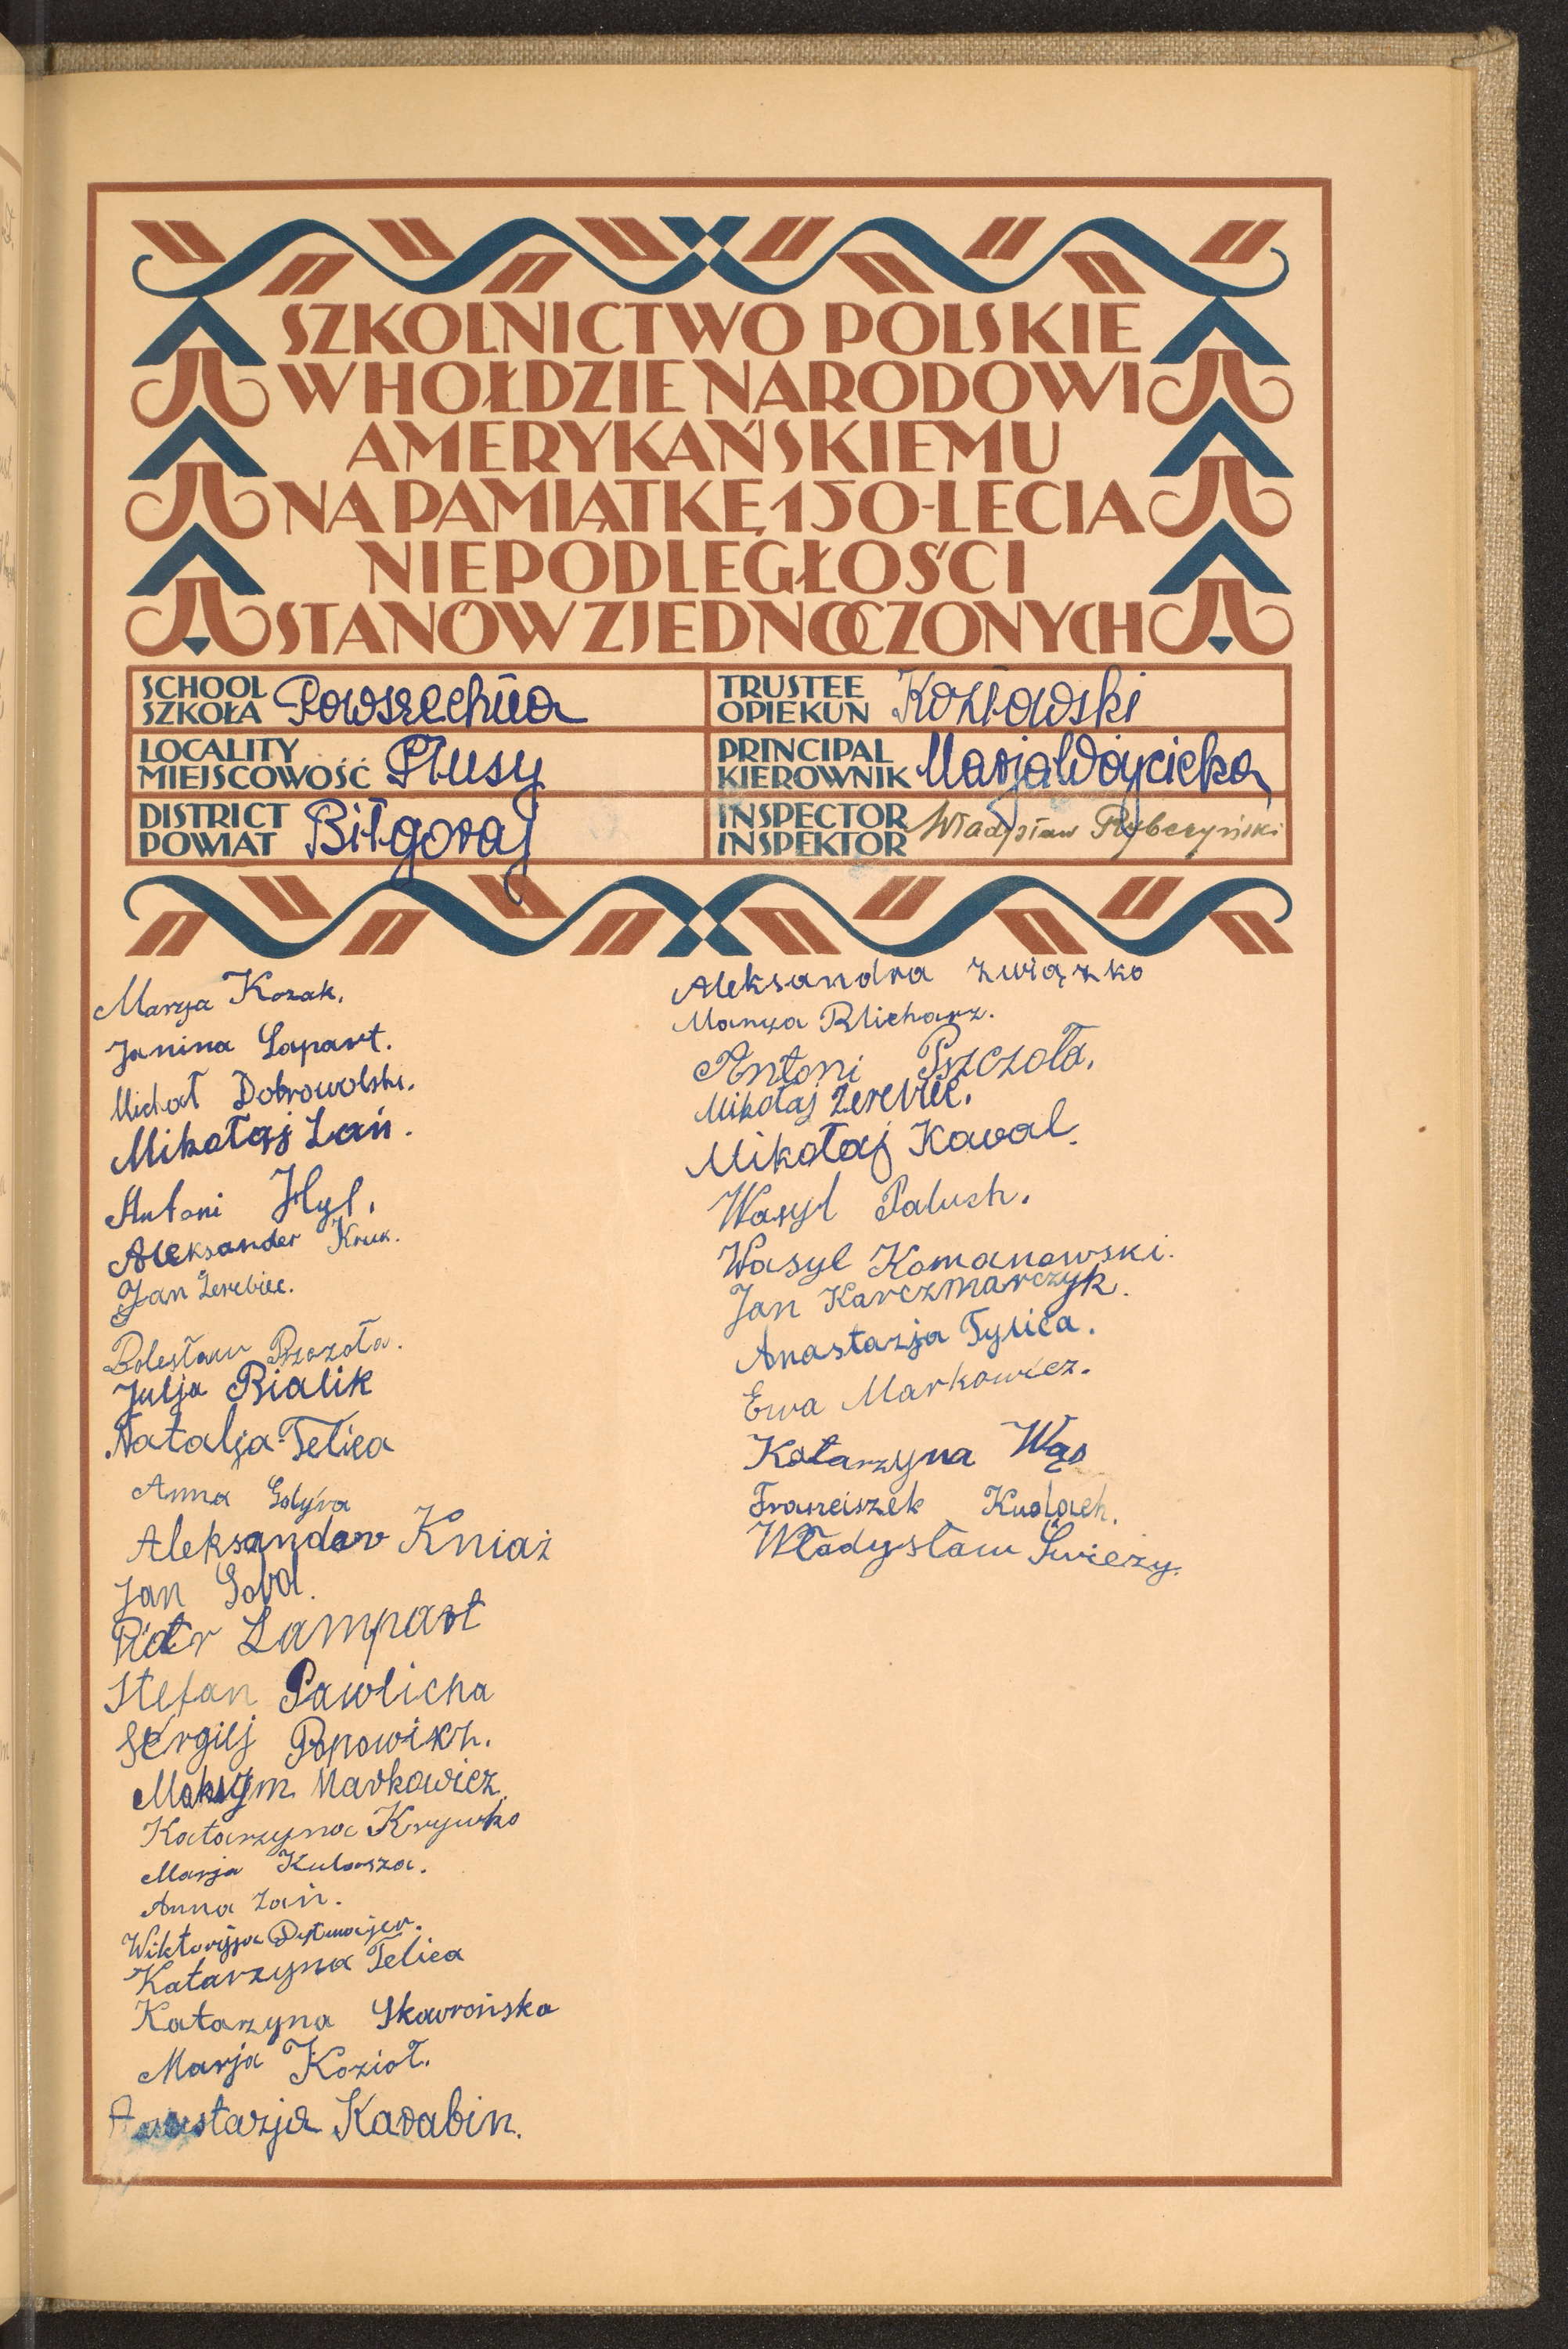 SZKOLNICTWO POLSKIE
W HOŁDZIE NARODOWI
AMERYKAŃSKIEMU
NA PAMIĄTKĘ 150-LECIA
NIEPODLEGŁOŚCI
STANÓW ZJEDNOCZONYCH
SCHOOL
SZKOŁA Powszechna
LOCALITY
MIEJSCOWOŚĆ Płusy
DISTRICT
POWIAT Biłgoraj
TRUSTEE
OPIEKUN Kozłowski
PRINCIPAL
KIEROWNIK Marja Wóycicka
INSPECTOR
INSPEKTOR Władysław Rybczyński
Marya Kozak.
Janina Lapart.
Michał Dobrowolski.
Mikołaj Łań.
Antoni Hyl.
Aleksander Kruk.
Jan Żerebiec.
Bolesław Pszczoła.
Julja Bialik
Natalja Telica
Anna Gdyra
Aleksander Kniaź
Jan Sobol.
Piotr Lampart
Stefan Pawlicha
Sergiej Popowicz.
Maksym Markowicz.
Katarzyna Krywko
Marja Kulasza.
Anna Łań.
Wiktoryja
Katarzyna Telica
Katarzyna Skawrońska
Marja Kozioł.
Anastazja Karabin.
Aleksandra Związko
Marya Blicharz.
Antoni Pszczoła.
Mikołaj Żerebiec.
Mikołaj Kawal.
Wasyl Paluch.
Wasyl Komanowski.
Jan Karczmarczyk.
Anastazja Tylica.
Ewa Markowicz.
Katarzyna Wąs
Franciszek Kudłach.
Władysław Świeży.